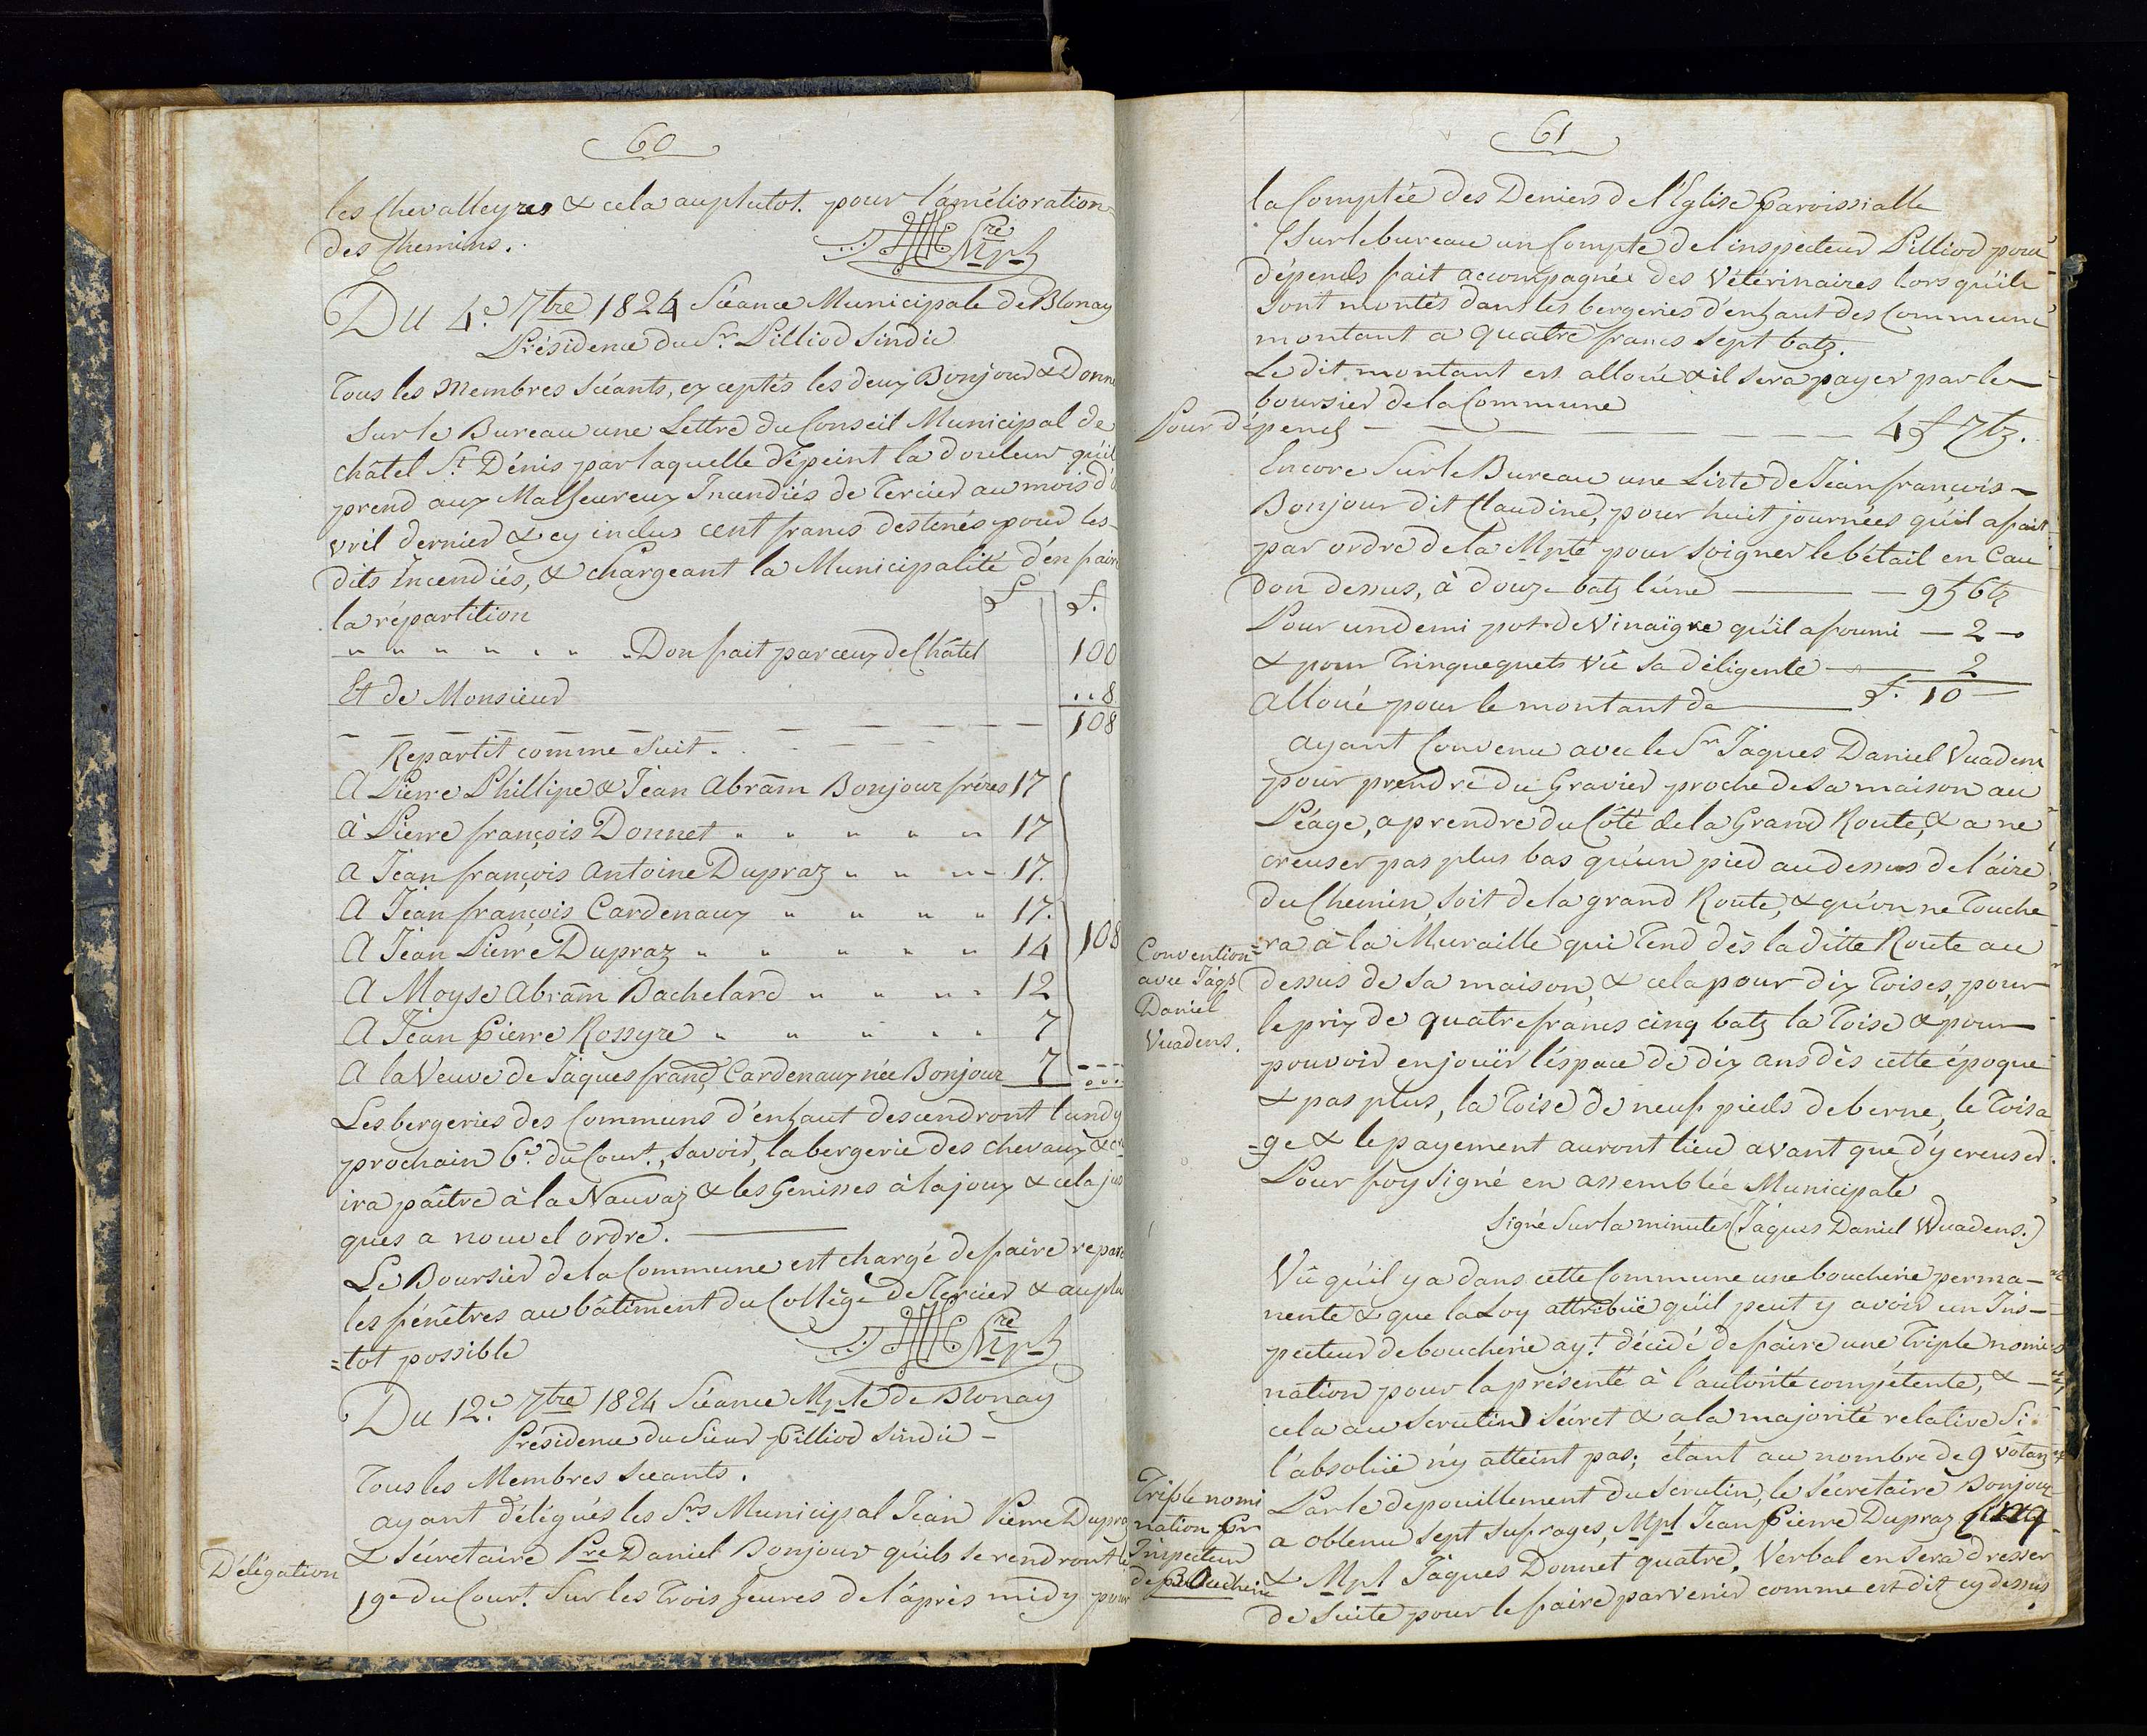 60
les Chevalleyres & cela auplutot. pour l'amélioration
des chemins.
Du 4e. 7bre 1824 Séance Municipale de Blonay
Présidence du Sr. Pilliod Sindic
Tous les Membres Séants, exceptés les deux Bonjour & Donne
Sur le Bureau une Lettre du Conseil Municipal de
châtel St. Dénis par laquelle dépeint la douleur qu'il
prend aux Malheureux Incendiés de Tercier au mois d'a
vril dernier & cy inclus cent francs destenés pour les
dits Incendiés, & chargeant la Municipalité d'en faire
la répartition
f. f.
" " " " " " " Don fait par ceux de Châtel 100
Et de Monsieur ..8
108
Repartit comme Suit.
A Pierre Phillipe & Jean Abram Bonjour fréres 17
à Pierre françois Donnet " " " " " 17
A Jean françois Antoine Dupraz " " " " 17.
A Jean françois Cardenaux " " " " 17.
A Jean Pierre Dupraz " " " " " 14
108
A Moyse Abram Bachelard " " " " 12
A Jean Pierre Rossyre " " " " " 7
A la Veuve de Jaques franç Cardenaux née Bonjour 7
Les bergeries des Communs d'enhaut descendront lundy
prochain 6e. du Court., Savoir, la bergerie des chevaux &
ira paître à la Nauvaz & les Genisses à la joux & cela jus
ques a nouvel ordre.
Le Boursier de la Commune est chargé de faire repare
les fénêtres au bâtiment du Collège de Tercier & au plu
=tot possible
Du 12e. 7bre 1824 Séance Mple de Blonay
Présidence du Sieur Pilliod Sindic
Tous les Membres Séants.
ayant délégués les Srs Municipal Jean Pierre Dupra
Délégation
& Sécretaire Pre Daniel Bonjour qu'ils se rendront le
19e du Court. Sur les Trois heures de l'après midy pour
61
la Comptée des Deniers de l'Eglise Paroissialle
Sur le bureau un Compte de l'inspecteur Pilliod pour
dépends fait accompagnée des Vétérinaires lors qu'ils
Sont montés dans les bergeries d'enhaut des Commune
montant a quatre francs Sept batz.
Le dit montant est alloué & il sera payer par le
boursier de la Commune
Pour dépends 4 f 7 bz.
Encore Sur le Bureau une Liste de Jean françois
Bonjour dit Claudine, pour huit journées qu'il a fait
par ordre de la Mpté pour soigner le bétail en Cau
don dessus, à douze batz l'une 9 f 6 bz
Pour un demi pot de Vinaigre qu'il a fourni 2
& pour Trinqueguets vû sa diligente 2
alloué pour le montant de f. 10
ayant Convenu avec le Sr. Jaques Daniel Vuadens
pour prendre du Gravier proche de sa maison au
Péage, a prendre du Côté de la Grand Route, & a ne
creuser pas plus bas qu'un pied au dessus de l'aire
du Chemin, soit de la grand Route, & qu'on ne Touche
ra à la Muraille qui Tend dès la ditte Route au
Convention
avec Jaqs
Daniel
Vuadens.
dessus de sa maison, & cela pour dix Toises, pour
le prix de quatre francs cinq batz la Toise & pour
pouvoir en jouïr l'éspace de dix ans dès cette époque
& pas plus, la Toise de neuf pieds de berne, le Toisa
-ge & le payement auront lieu avant que d'y creuser.
Pour foy signé en assemblée Municipale
Signé Sur la minute (Jâques Daniel Wuadens.)
Vû qu'il y a dans cette Commune une boucherie perma-
nente & que la Loy attribüe qu'il peut y avoir un Ins-
pecteur de boucherie ayt. décidé de faire une Triple nomi
nation pour la présenté à l'autorité compétente, &
cela au Scrutin Sécret & a la majorité relative Si
l'absolüe n'y atteint pas; étant au nombre de 9 vôtans
Triple nomi
nation Pr
Inspecteur
de Boucherie
Par le depouillement du Scrutin, le Sécretaire Bonjour
a obtenu Sept Sufrages, Mpl Jean Pierre Dupraz Cinq
& Mpl Jâques Donnet quatre. Verbal en sera dresser
de Suite pour le faire parvenir comme est dit cy dessus.